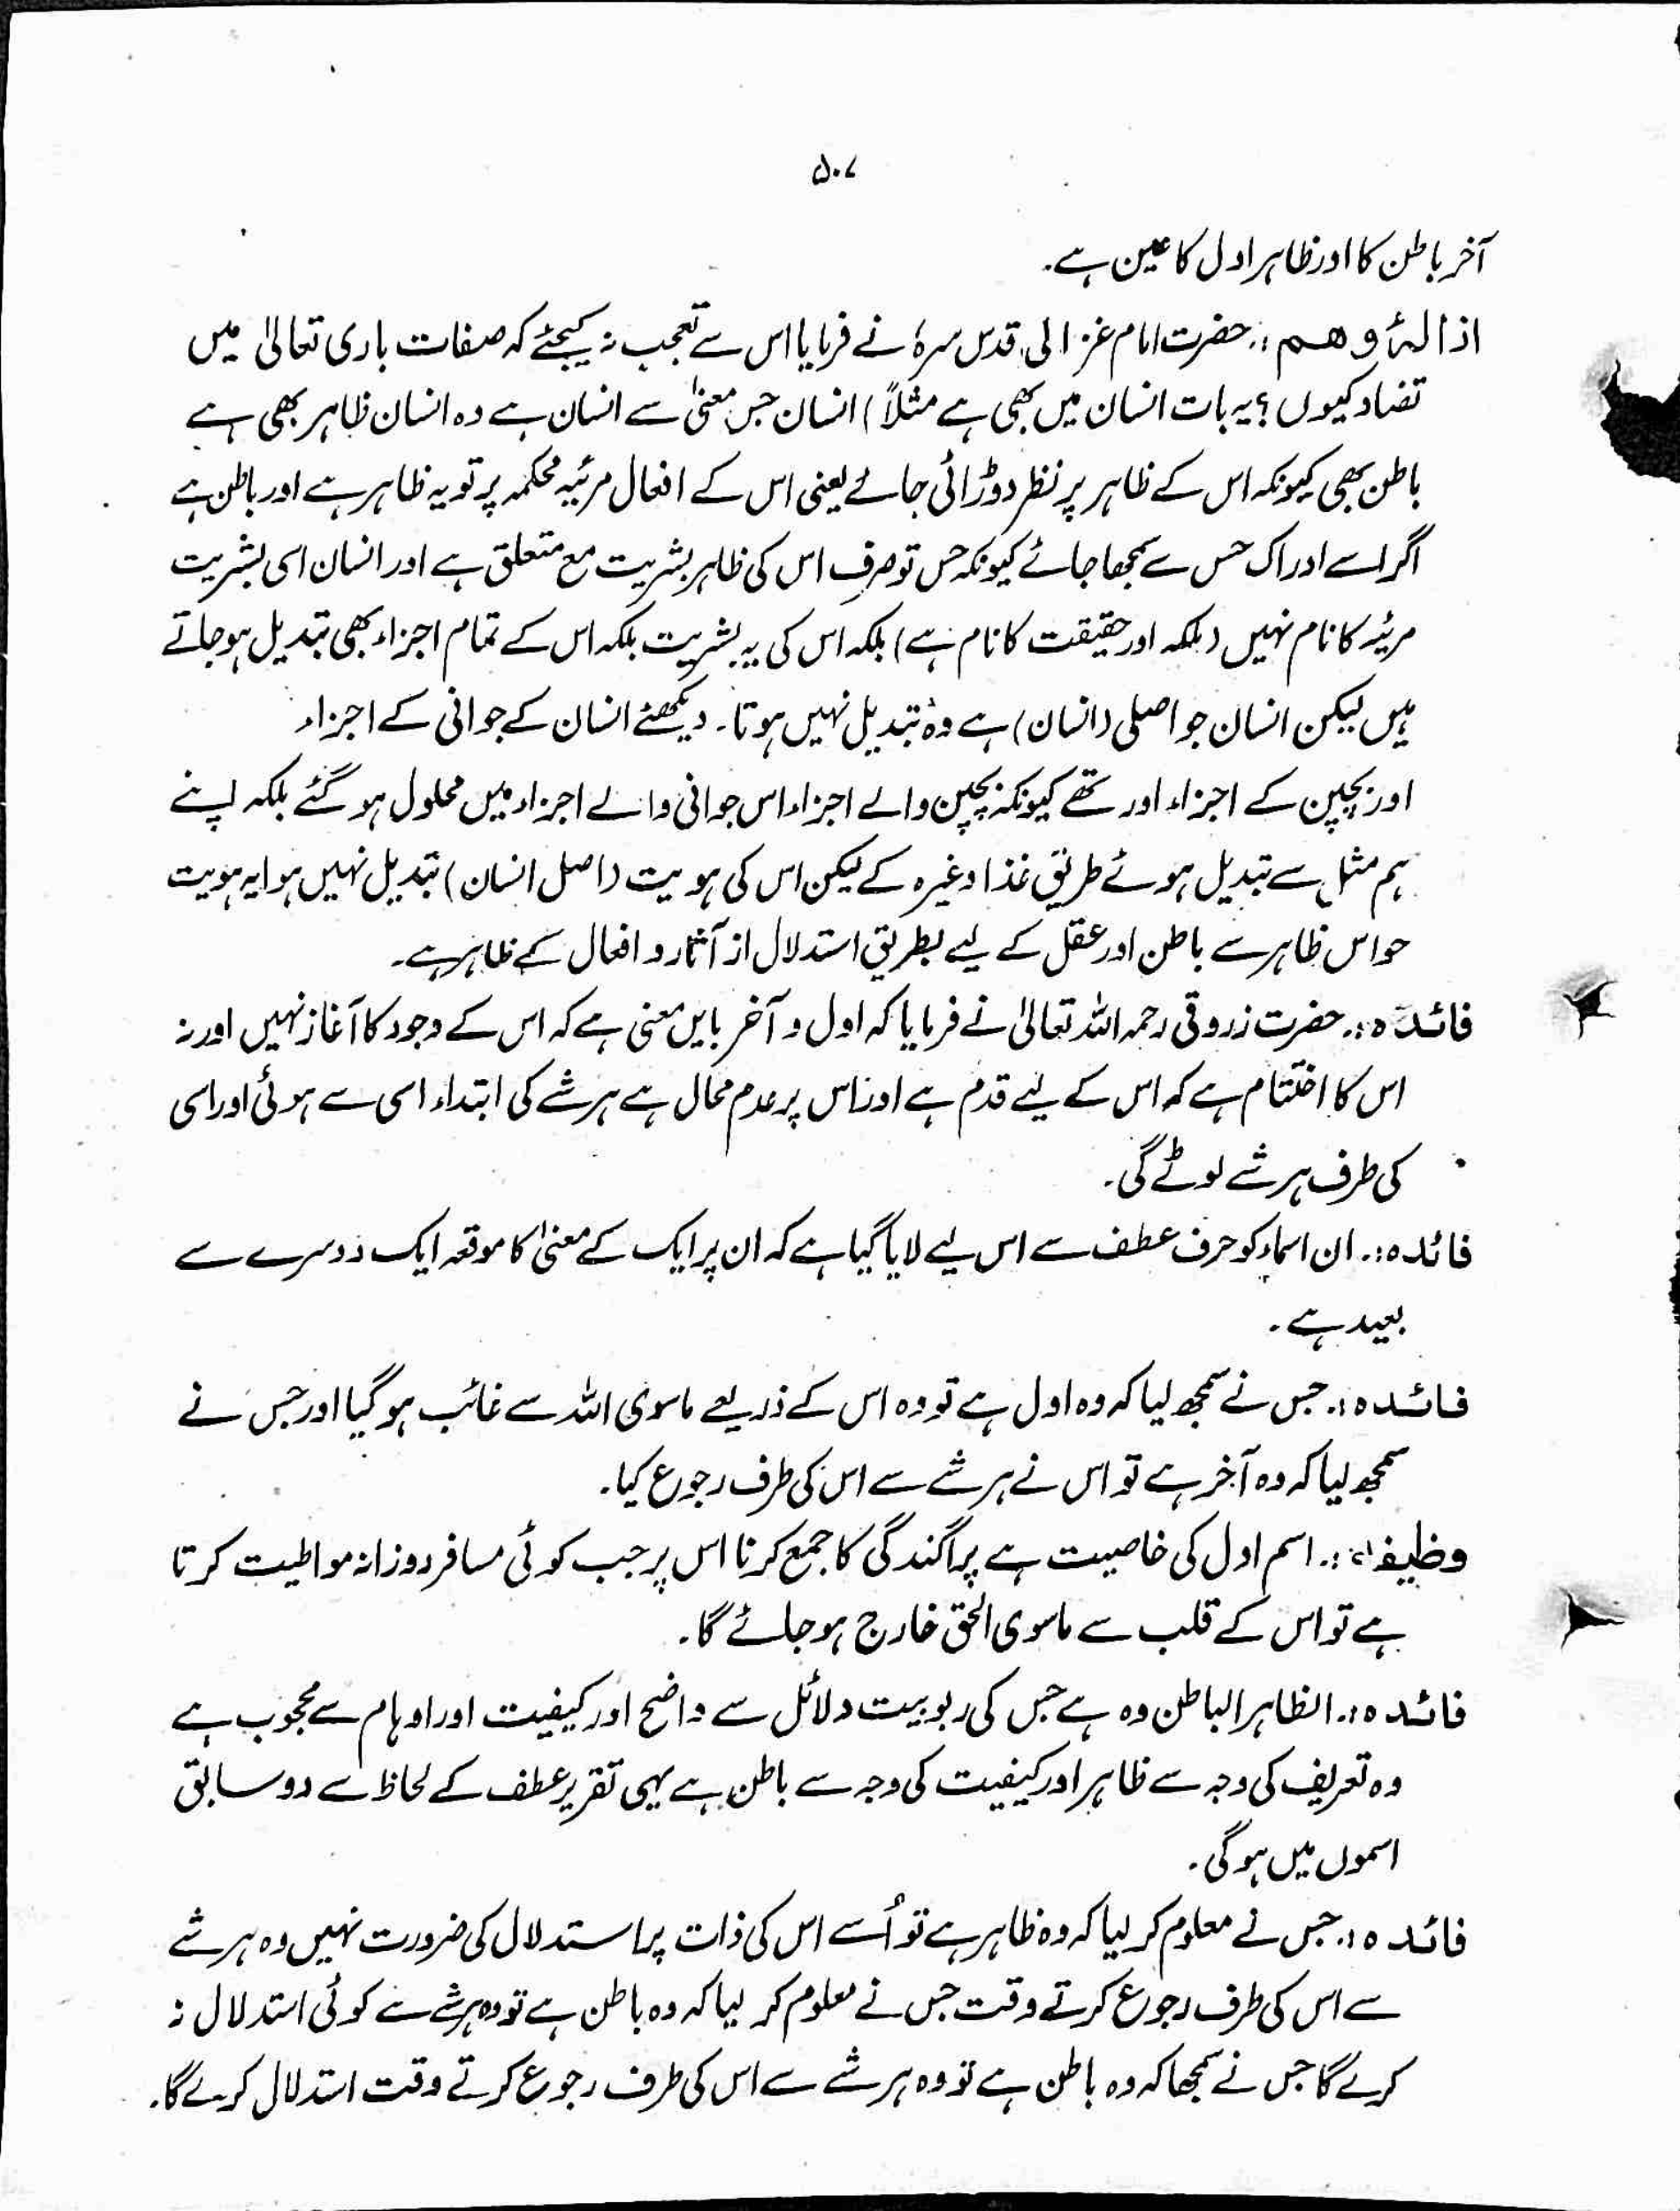 ۵۰۷
آخر باطن کا اور ظاہر اول کا عین ہے۔
ازالۂ وھم :۔ حضرت امام غزالی قدس سرہٗ نے فرمایا اس سے تعجب نہ کیجئے کہ صفات باری تعالیٰ میں
تضاد کیوں ؟ یہ بات انسان میں بھی ہے مثلاً ) انسان جس معنیٰ سے انسان ہے وہ انسان ظاہر بھی ہے
باطن بھی کیونکہ اس کے ظاہر پر نظر دوڑائی جائے یعنی اس کے افعال مرئیہ محکمہ پر تو یہ ظاہر ہے اور باطن ہے
اگر اسے ادراک حس سے سمجھا جائے کیونکہ حس تو صرف اس کی ظاہر بشریت مع متعلق ہے اور انسان اسی بشریت
مرئیہ کا نام نہیں (بلکہ اور حقیقت کا نام ہے) بلکہ اس کی یہ بشریت بلکہ اس کے تمام اجزاء بھی تبدیل ہو جاتے
ہیں لیکن انسان جو اصلی (انسان) ہے وہ تبدیل نہیں ہوتا۔ دیکھئے انسان کے جوانی کے اجزاء
اور بچپن کے اجزاء اور تھے کیونکہ بچپن والے اجزاء اس جوانی والے اجزاء میں محلول ہو گئے بلکہ اپنے
ہم مثل سے تبدیل ہوئے طریق غذا وغیرہ کے لیکن اس کی ہویت (اصل انسان) تبدیل نہیں ہوا یہ ہویت
حواس ظاہر سے باطن اور عقل کے لیے بطریق استدلال از آثار و افعال کے ظاہر ہے۔
فائدہ :۔ حضرت زروقی رحمہ اللہ تعالیٰ نے فرمایا کہ اول و آخر بایں معنی ہے کہ اس کے وجود کا آغاز نہیں اور نہ
اس کا اختتام ہے کہ اس کے لیے قدم ہے اور اس پر عدم محال ہے ہر شے کی ابتداء اسی سے ہوئی اور اسی
کی طرف ہر شے لوٹے گی۔
فائدہ :۔ ان اسماء کو حرف عطف سے اس لیے لایا گیا ہے کہ ان پر ایک کے معنیٰ کا موقعہ ایک دوسرے سے
بعید ہے ۔
فائدہ :۔ جس نے سمجھ لیا کہ وہ اول ہے تو وہ اس کے ذریعے ماسوی اللہ سے غائب ہو گیا اور جس نے
سمجھ لیا کہ وہ آخر ہے تو اس نے ہر شے سے اس کی طرف رجوع کیا۔
وظیفہ :۔ اسم اول کی خاصیت ہے پراگندگی کا جمع کرنا اس پر جب کوئی مسافر روزانہ مواظیت کرتا
ہے تو اس کے قلب سے ماسوی الحق خارج ہو جائے گا۔
فائدہ :۔ الظاہر الباطن وہ ہے جس کی ربوبیت دلائل سے واضح اور کیفیت اور اوہام سے محجوب ہے
وہ تعریف کی وجہ سے ظاہر اور کیفیت کی وجہ سے باطن ہے یہی تقریر عطف کے لحاظ سے دو سابق
اسموں میں ہو گی ۔
فائدہ :۔ جس نے معلوم کر لیا کہ وہ ظاہر ہے تو اُسے اس کی ذات پر استدلال کی ضرورت نہیں وہ ہر شے
سے اس کی طرف رجوع کرتے وقت جس نے معلوم کر لیا کہ وہ باطن ہے تو وہ ہر شے سے کوئی استدلال نہ
کرے گا جس نے سمجھا کہ وہ باطن ہے تو وہ ہر شے سے اس کی طرف رجوع کرتے وقت استدلال کرے گا۔